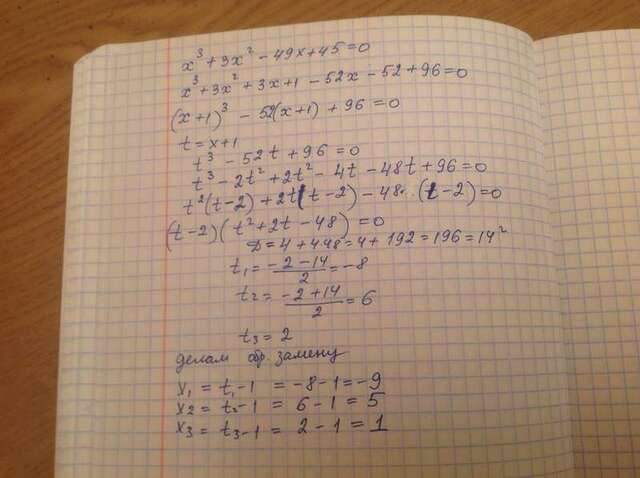 x³ + 3x² - 49x + 45 = 0
x³ + 3x² + 3x + 1 - 52x - 52 + 96 = 0
(x+1)³ - 52(x+1) + 96 = 0
t = x+1
t³ - 52t + 96 = 0
t³ - 2t² + 2t² - 4t - 48t + 96 = 0
t²(t-2) + 2t(t-2) - 48 · (t-2) = 0
(t-2)(t² + 2t - 48) = 0
D = 4 + 4·48 = 4 + 192 = 196 = 14²
t₁ = (-2-14)/2 = -8
t₂ = (-2+14)/2 = 6
t₃ = 2
делам обр. замену
x₁ = t₁-1 = -8-1 = -9
x₂ = t₂-1 = 6-1 = 5
x₃ = t₃-1 = 2-1 = 1